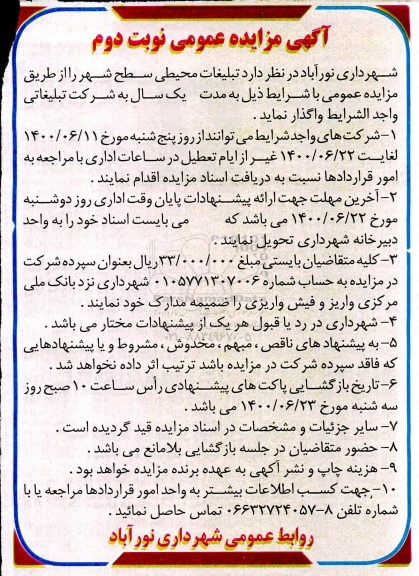 آگهی مزایده عمومی نوبت دوم
شهرداری نورآباد در نظر دارد تبلیغات محیطی سطح شهر را از طریق
مزایده عمومی با شرایط ذیل به مدت یک سال به شرکت تبلیغاتی
واجد الشرایط واگذار نماید .
۱- شرکت های واجد شرایط می توانند از روز پنج شنبه مورخ ۱۴۰۰/۰۶/۱۱
لغایت ۱۴۰۰/۰۶/۲۲ غیر از ایام تعطیل در ساعات اداری با مراجعه به
امور قراردادها نسبت به دریافت اسناد مزایده اقدام نمایند .
۲- آخرین مهلت جهت ارائه پیشنهادات پایان وقت اداری روز دوشنبه
مورخ ۱۴۰۰/۰۶/۲۲ می باشد که می بایست اسناد خود را به واحد
دبیرخانه شهرداری تحویل نمایند .
۳- کلیه متقاضیان بایستی مبلغ ۳۳/۰۰۰/۰۰۰ ریال بعنوان سپرده شرکت
در مزایده به حساب شماره ۰۱۰۵۷۷۱۳۰۷۰۰۶ شهرداری نزد بانک ملی
مرکزی واریز و فیش واریزی را ضمیمه مدارک خود نمایند .
۴- شهرداری در رد یا قبول هر یک از پیشنهادات مختار می باشد .
۵- به پیشنهاد های ناقص ، مبهم ، مخدوش ، مشروط و یا پیشنهادهایی
که فاقد سپرده شرکت در مزایده باشد ترتیب اثر داده نخواهد شد .
۶- تاریخ بازگشایی پاکت های پیشنهادی رأس ساعت ۱۰ صبح روز
سه شنبه مورخ ۱۴۰۰/۰۶/۲۳ می باشد .
۷- سایر جزئیات و مشخصات در اسناد مزایده قید گردیده است .
۸- حضور متقاضیان در جلسه بازگشایی بلامانع می باشد .
۹- هزینه چاپ و نشر آگهی به عهده برنده مزایده خواهد بود .
۱۰- جهت کسب اطلاعات بیشتر به واحد امور قراردادها مراجعه یا با
شماره تلفن ۸-۰۶۶۳۲۷۲۴۰۵۷ تماس حاصل نمائید .
روابط عمومی شهرداری نورآباد